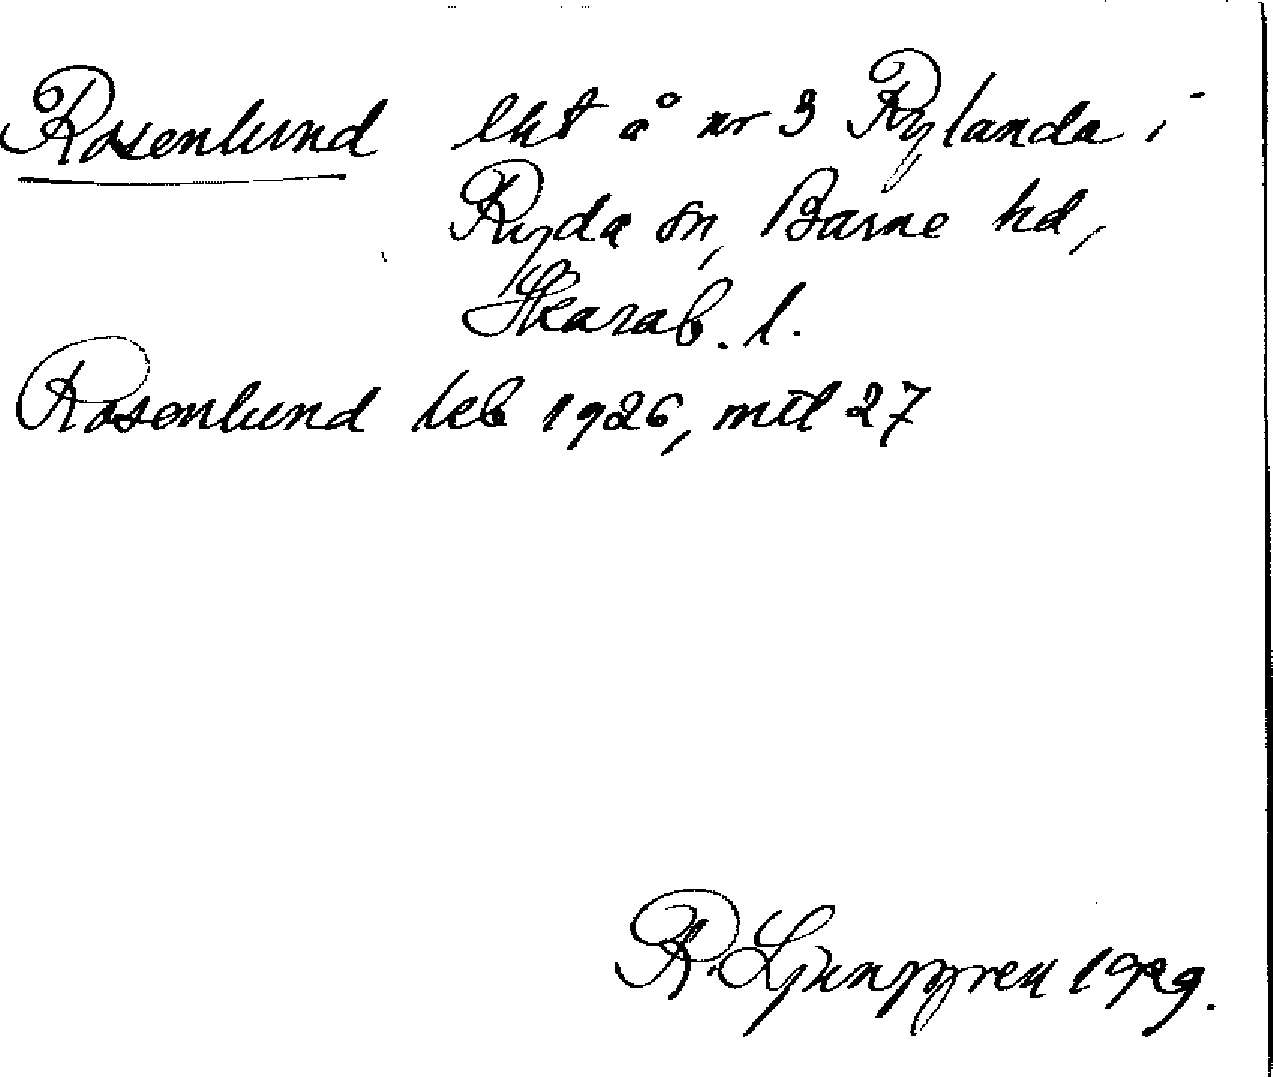 Rosenlund lht å nr 3 Rylanda i
Ryda sn, Barne hd,
Skarab. l.
Rosenlund leb 1926, mtl 27
R. Ljunggren 1929.